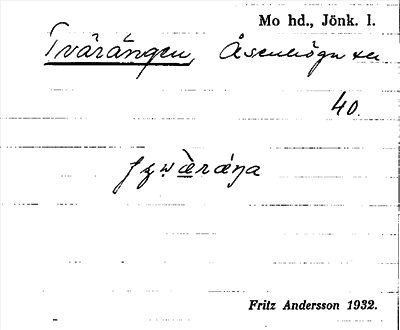 Mo hd., Jönk. l.
Tvärängen, Åsenhöga sn
40.
Fritz Andersson 1932.